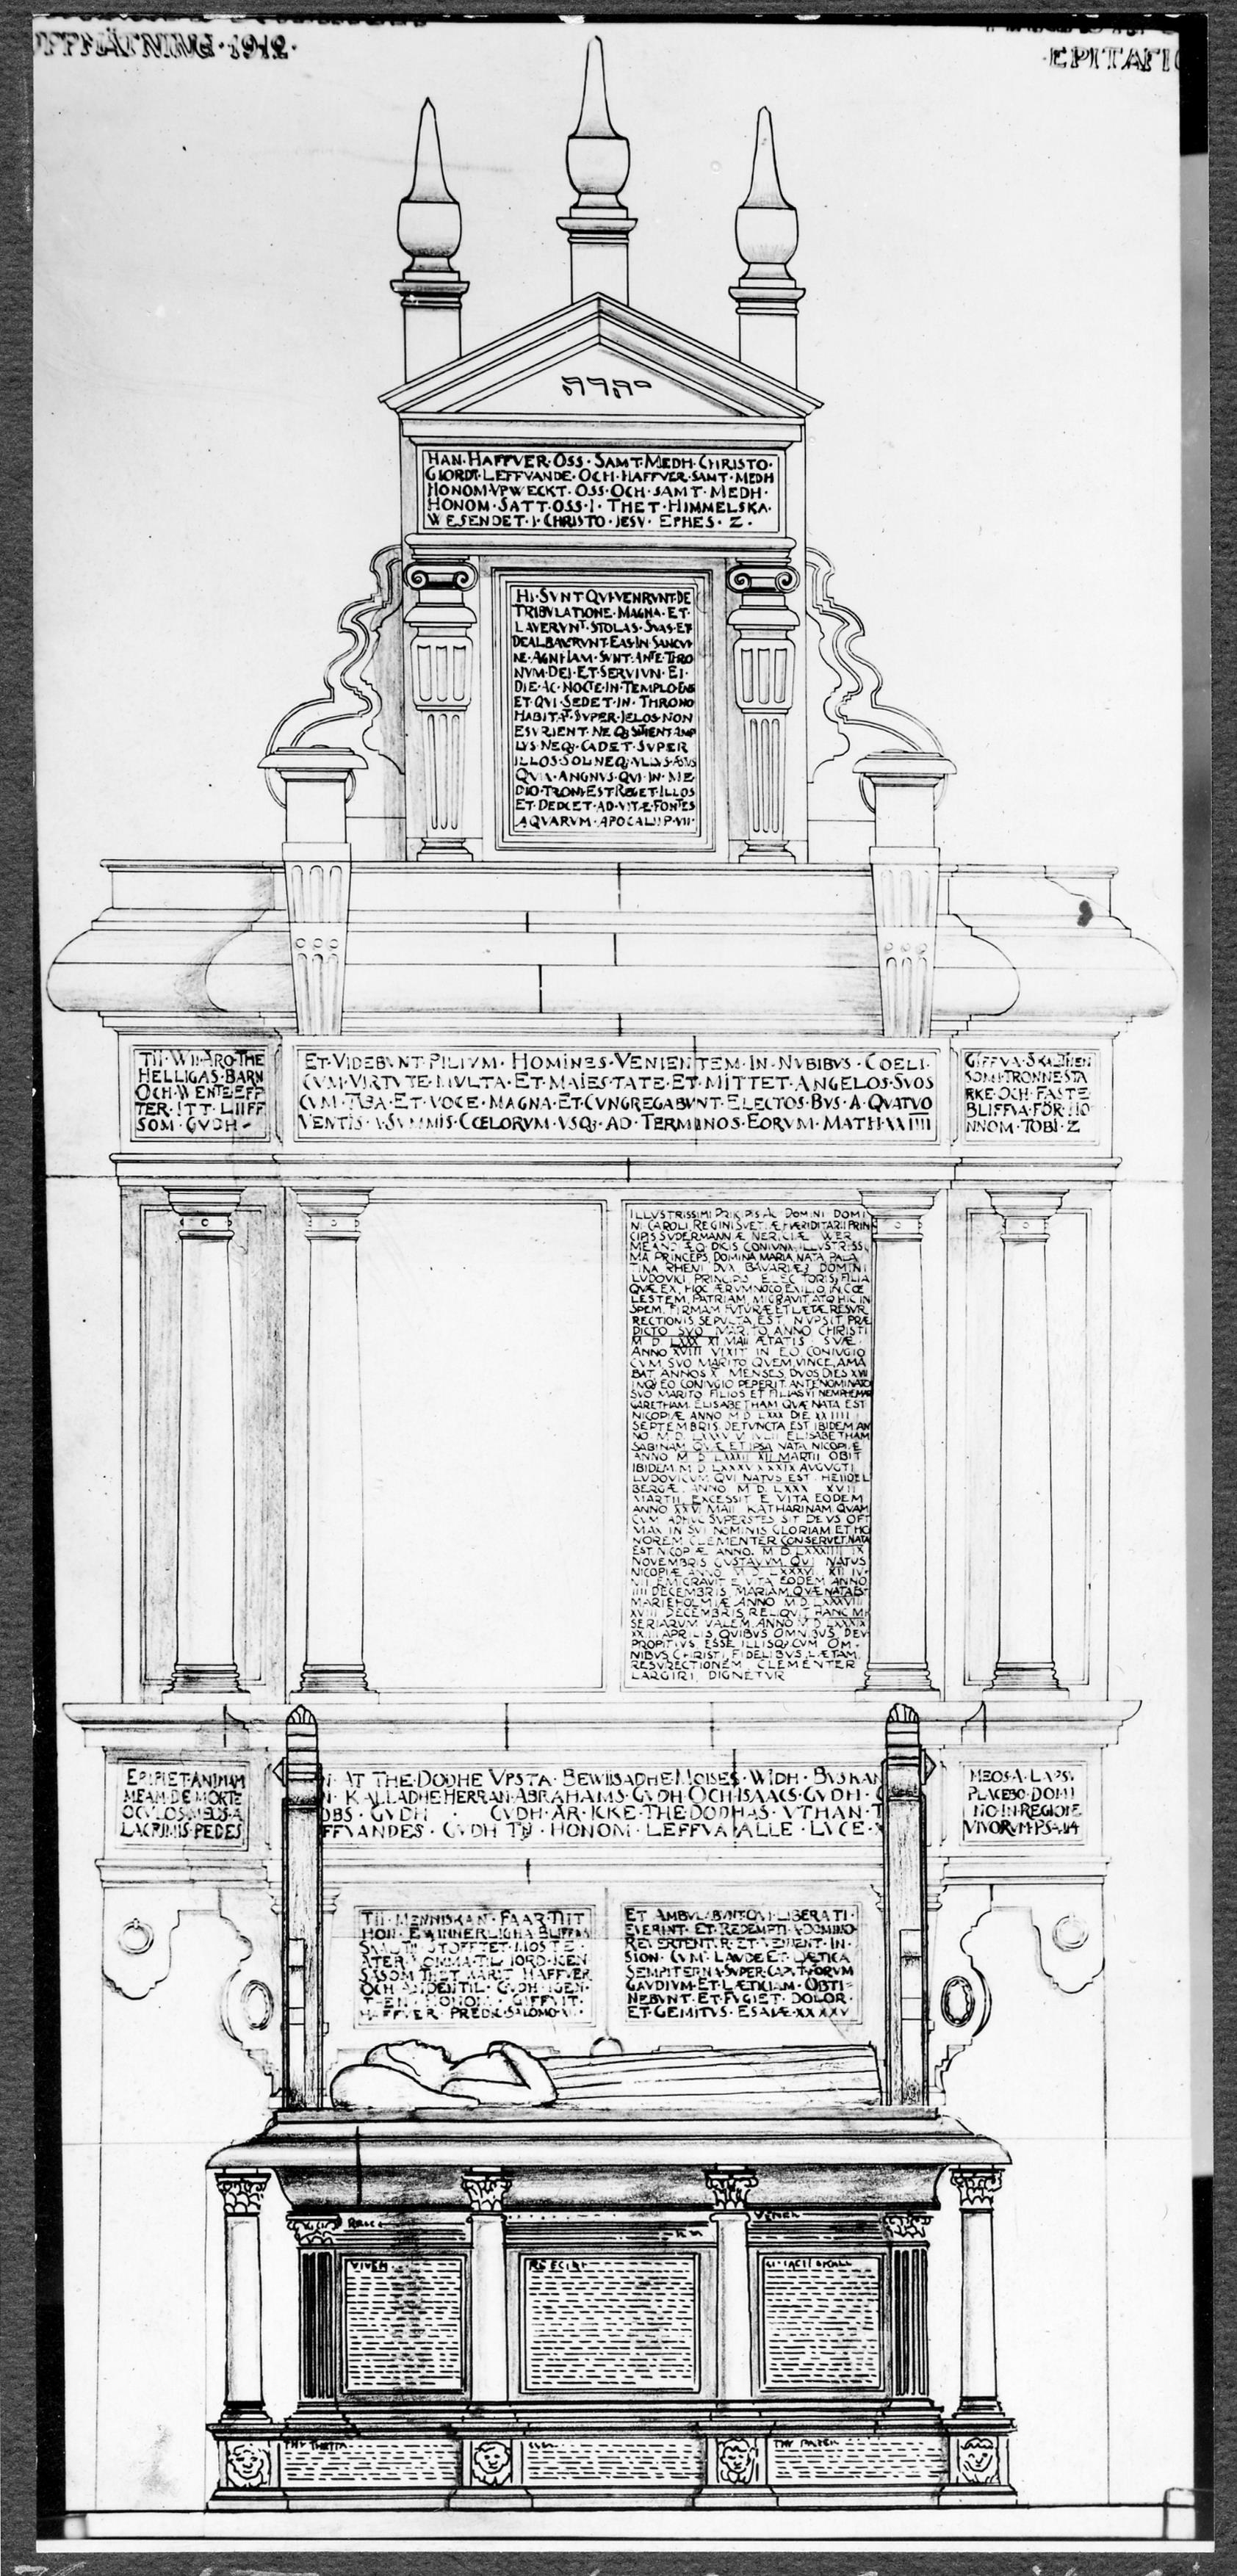 UPPMÄTNING · 1912 ·
· EPITAFI
יהוה
HAN · HAFFVER · OSS · SAMT · MEDH · CHRISTO ·
GIORDT · LEFFVANDE · OCH · HAFFVER · SAMT · MEDH
HONOM · VPWECKT · OSS · OCH · SAMT · MEDH ·
HONOM · SATT · OSS · I · THET · HIMMELSKA ·
WESENDET · I · CHRISTO · IESV · EPHES · 2 ·
HI · SVNT · QVI · VENRVNT · DE
TRIBVLATIONE · MAGNA · ET ·
LAVERVNT · STOLAS · SVAS · ET
DEALBAVERVNT · EAS · IN · SANGVI
NE · AGNI · IAM · SVNT · ANTE · THRO
NVM · DEI · ET · SERVIVN · EI ·
DIE · AC · NOCTE · IN · TEMPLO · EIVS
ET · QVI · SEDET · IN · THRONO
HABITAT · SVPER · IELOS · NON
ESVRIENT · NEQ3 SITIENT AMP
LVS · NEQ3 · CADET · SVPER
ILLOS · SOL NEQ3 VLLVS ÆSTVS
QVIA · ANGNVS · QVI · IN · ME
DIO · TRONI · EST REGET · ILLOS
ET · DEDCET · AD · VITÆ · FONTES
AQVARVM · APOCALIIP · VII ·
TII · WII · ARO · THE
HELLIGAS · BARN
OCH · WENTE · EFF
TER · ITT · LIIFF
SOM · GVDH
ET · VIDEBVNT · FILIVM · HOMINES · VENIENTEM · IN · NVBIBVS · COELI ·
CVM · VIRTVTE · MVLTA · ET · MAIESTATE · ET · MITTET · ANGELOS · SVOS
CVM · TVBA · ET · VOCE · MAGNA · ET · CVNGREGABVNT · ELECTOS · BVS · A · QVATVO
VENTIS · A · SVMMIS · CŒLORVM · VSQ3 · AD · TERMINOS · EORVM · MATH · XXIIII
GIFFVA · SKAL THEN
SOM I · TRONNE STA
RKE · OCH · FASTE
BLIFFVA · FÖR · HO
NNOM · TOBI · 2
ILLVSTRISSIMI PRIKIPIS AC DOMINI DOMI
NI CAROLI REGINI SVETIÆ HÆRIDITARII PRIN
CIPIS SVDERMANNIÆ NERICIÆ WER
MELANDIÆQ DVCIS CONIVNX ILLVSTRISSI
MA PRINCEPS DOMINA MARIA NATA PALA
TINA RHENI DVX BAVARIÆ DOMINI
LUDOVICI PRINCIPIS ELECTORIS FILIA
QVÆ EX HOC ÆRVMNOCO EXILIO IN CŒ
LESTEM PATRIAM MIGRAVIT ATQ HIC IN
SPEM FIRMAM FVTVRÆ ET LÆTÆ RESVR
RECTIONIS SEPVLTA EST NVPSIT PRÆ
DICTO SVO MARITO ANNO CHRISTI
M D LXXIX XI MAII ÆTATIS SVÆ
ANNO XVIII VIXIT IN EO CONIVGIO
CVM SVO MARITO QVEM VNICE AMA
BAT ANNOS X MENSES DVOS DIES XVII
INQ3 EO CONIVGIO PEPERIT ANTENOMINATO
SVO MARITO FILIOS ET FILIAS VI NEMPHE MAR
GARETHAM ELISABETHAM QVÆ NATA EST
NICOPIÆ ANNO M D LXXX DIE XXIIII
SEPTEMBRIS DEFVNCTA EST IBIDEM AN
NO M D LXXXV V IVLII ELISABETHAM
SABINAM QVÆ ET IPSA NATA NICOPIÆ
ANNO M D LXXXII XII MARTII OBIIT
IBIDEM M D LXXXV AVGVSTI
LUDOVICVM QVI NATVS EST HEIIDEL
BERGÆ ANNO M D LXXX XVII
MARTII EXCESSIT E VITA EODEM
ANNO XXVI MAII KATHARINAM QVAM
CVM ADHVC SVPERSTES SIT DEVS OPT
MAX IN SVI NOMINIS GLORIAM ET HO
NOREM CLEMENTER CONSERVET NATA
EST NICOPIÆ ANNO M D LXXXIIII IX
NOVEMBRIS GVSTAVVM QVI NATVS
NICOPIÆ ANNO M D LXXXVI XII IV
NII EMIGRAVIT E VITA EODEM ANNO
IIII DECEMBRIS MARIAM QVÆ NATA EST
MARIEHOLMIÆ ANNO M D LXXXVIII
XVIII DECEMBRIS RELIQVIT HANC MI
SERIARVM VALEM ANNO M D LXXXIX
XXIII APRILIS QVIBVS OMNIBVS DEV
PROPITIVS ESSE ILLISQ3 CVM OM
NIBVS CHRISTI FIDELIBVS LÆTAM
RESVRECTIONEM CLEMENTER
LARGIRI DIGNETVR
ERIPIET · ANIMAM
MEAM · DE MORTE
OCVLOS · MEOS · A
LACRIMIS · PEDES
N · AT THE · DODHE VPSTA · BEWIISADHE MOISES · WIDH · BVSKAN
N · KALLADHE HERRAN · ABRAHAMS · GVDH · OCH · ISAACS · GVDH ·
OBS · GVDH · GVDH · AR · ICKE · THE · DODHAS · VTHAN · T
FFVANDES · GVDH TII · HONOM · LEFFVA ALLE · LVCE ·
MEOS · A · LAPSV
PLACEBO · DOMI
NO · IN · REGIONE
VIVORVM · PSA · 114
TII · MENNISKAN · FAAR · TIIT
HON · EWINNERLIGHA BLIFFVA
STOFFTET · MOSTE
ATER · KOMMA · TIL · IORD · IGEN
SASOM THET WARIT HAFFVER
OCH · ANDEN TIL · GVDH IGEN
THEN HONOM GIFFVIT
HAFFVER · PREDIC · SALOMO
ET AMBVLABVNT · QVI · LIBERATI ·
FVERINT · ET · REDEMPTI · A · DOMINO
REVERTENTVR · ET · VENIENT · IN ·
SION · CVM · LAVDE · ET · LÆTICA
SEMPITERNA · SVPER · CAPVT · EORVM
GAVDIVM · ET · LÆTICIAM · OBTI=
NEBVNT · ET · FVGIET · DOLOR ·
ET · GEMITVS · ESAIÆ · XXXXV
VIVEN
THY